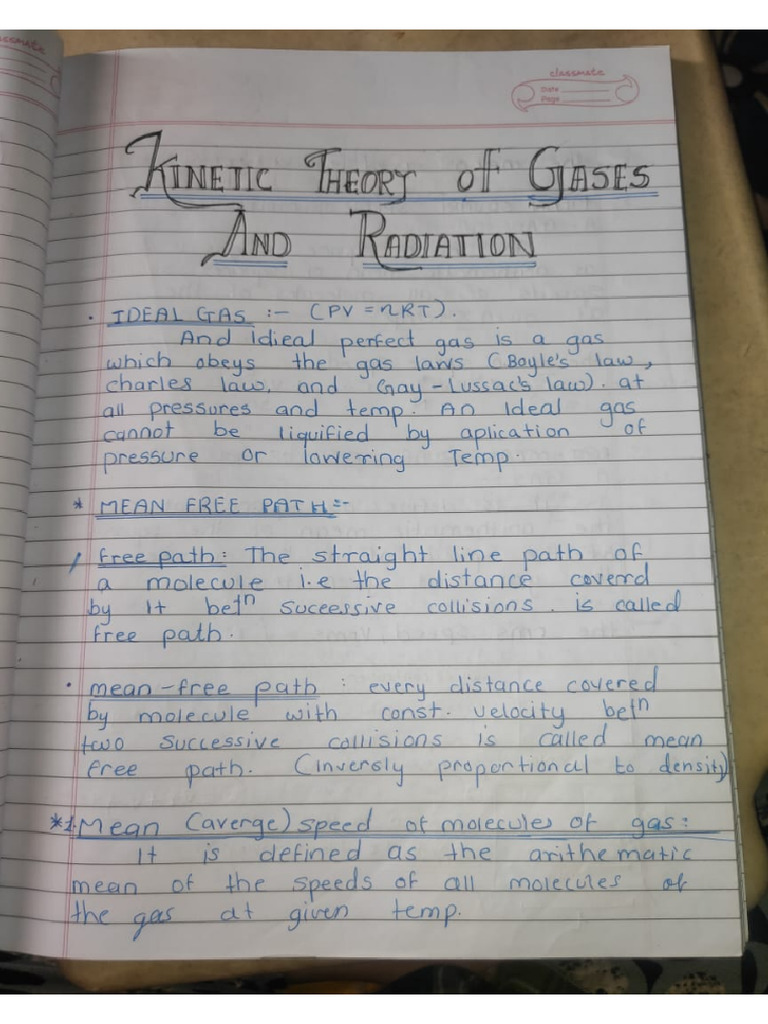 classmate
classmate
Date
Page
KINETIC THEORY of GASES
AND RADIATION
• IDEAL GAS :- (PV = nRT).
And Idieal perfect gas is a gas
which obeys the gas laws (Boyle's law,
charles law, and Gay-Lussac's law). at
all pressures and temp. An Ideal gas
cannot be liquified by aplication of
pressure or lowering Temp.
* MEAN FREE PATH:-
free path: The straight line path of
a molecule i.e the distance coverd
by it betⁿ suceessive collisions. is called
free path.
• mean-free path : every distance covered
by molecule with const. velocity betⁿ
two successive collisions is called mean
free path. (Inversly proportional to density)
*1. Mean (averge) speed of molecules of gas:
It is defined as the arithematic
mean of the speeds of all molecules of
the gas at given temp.